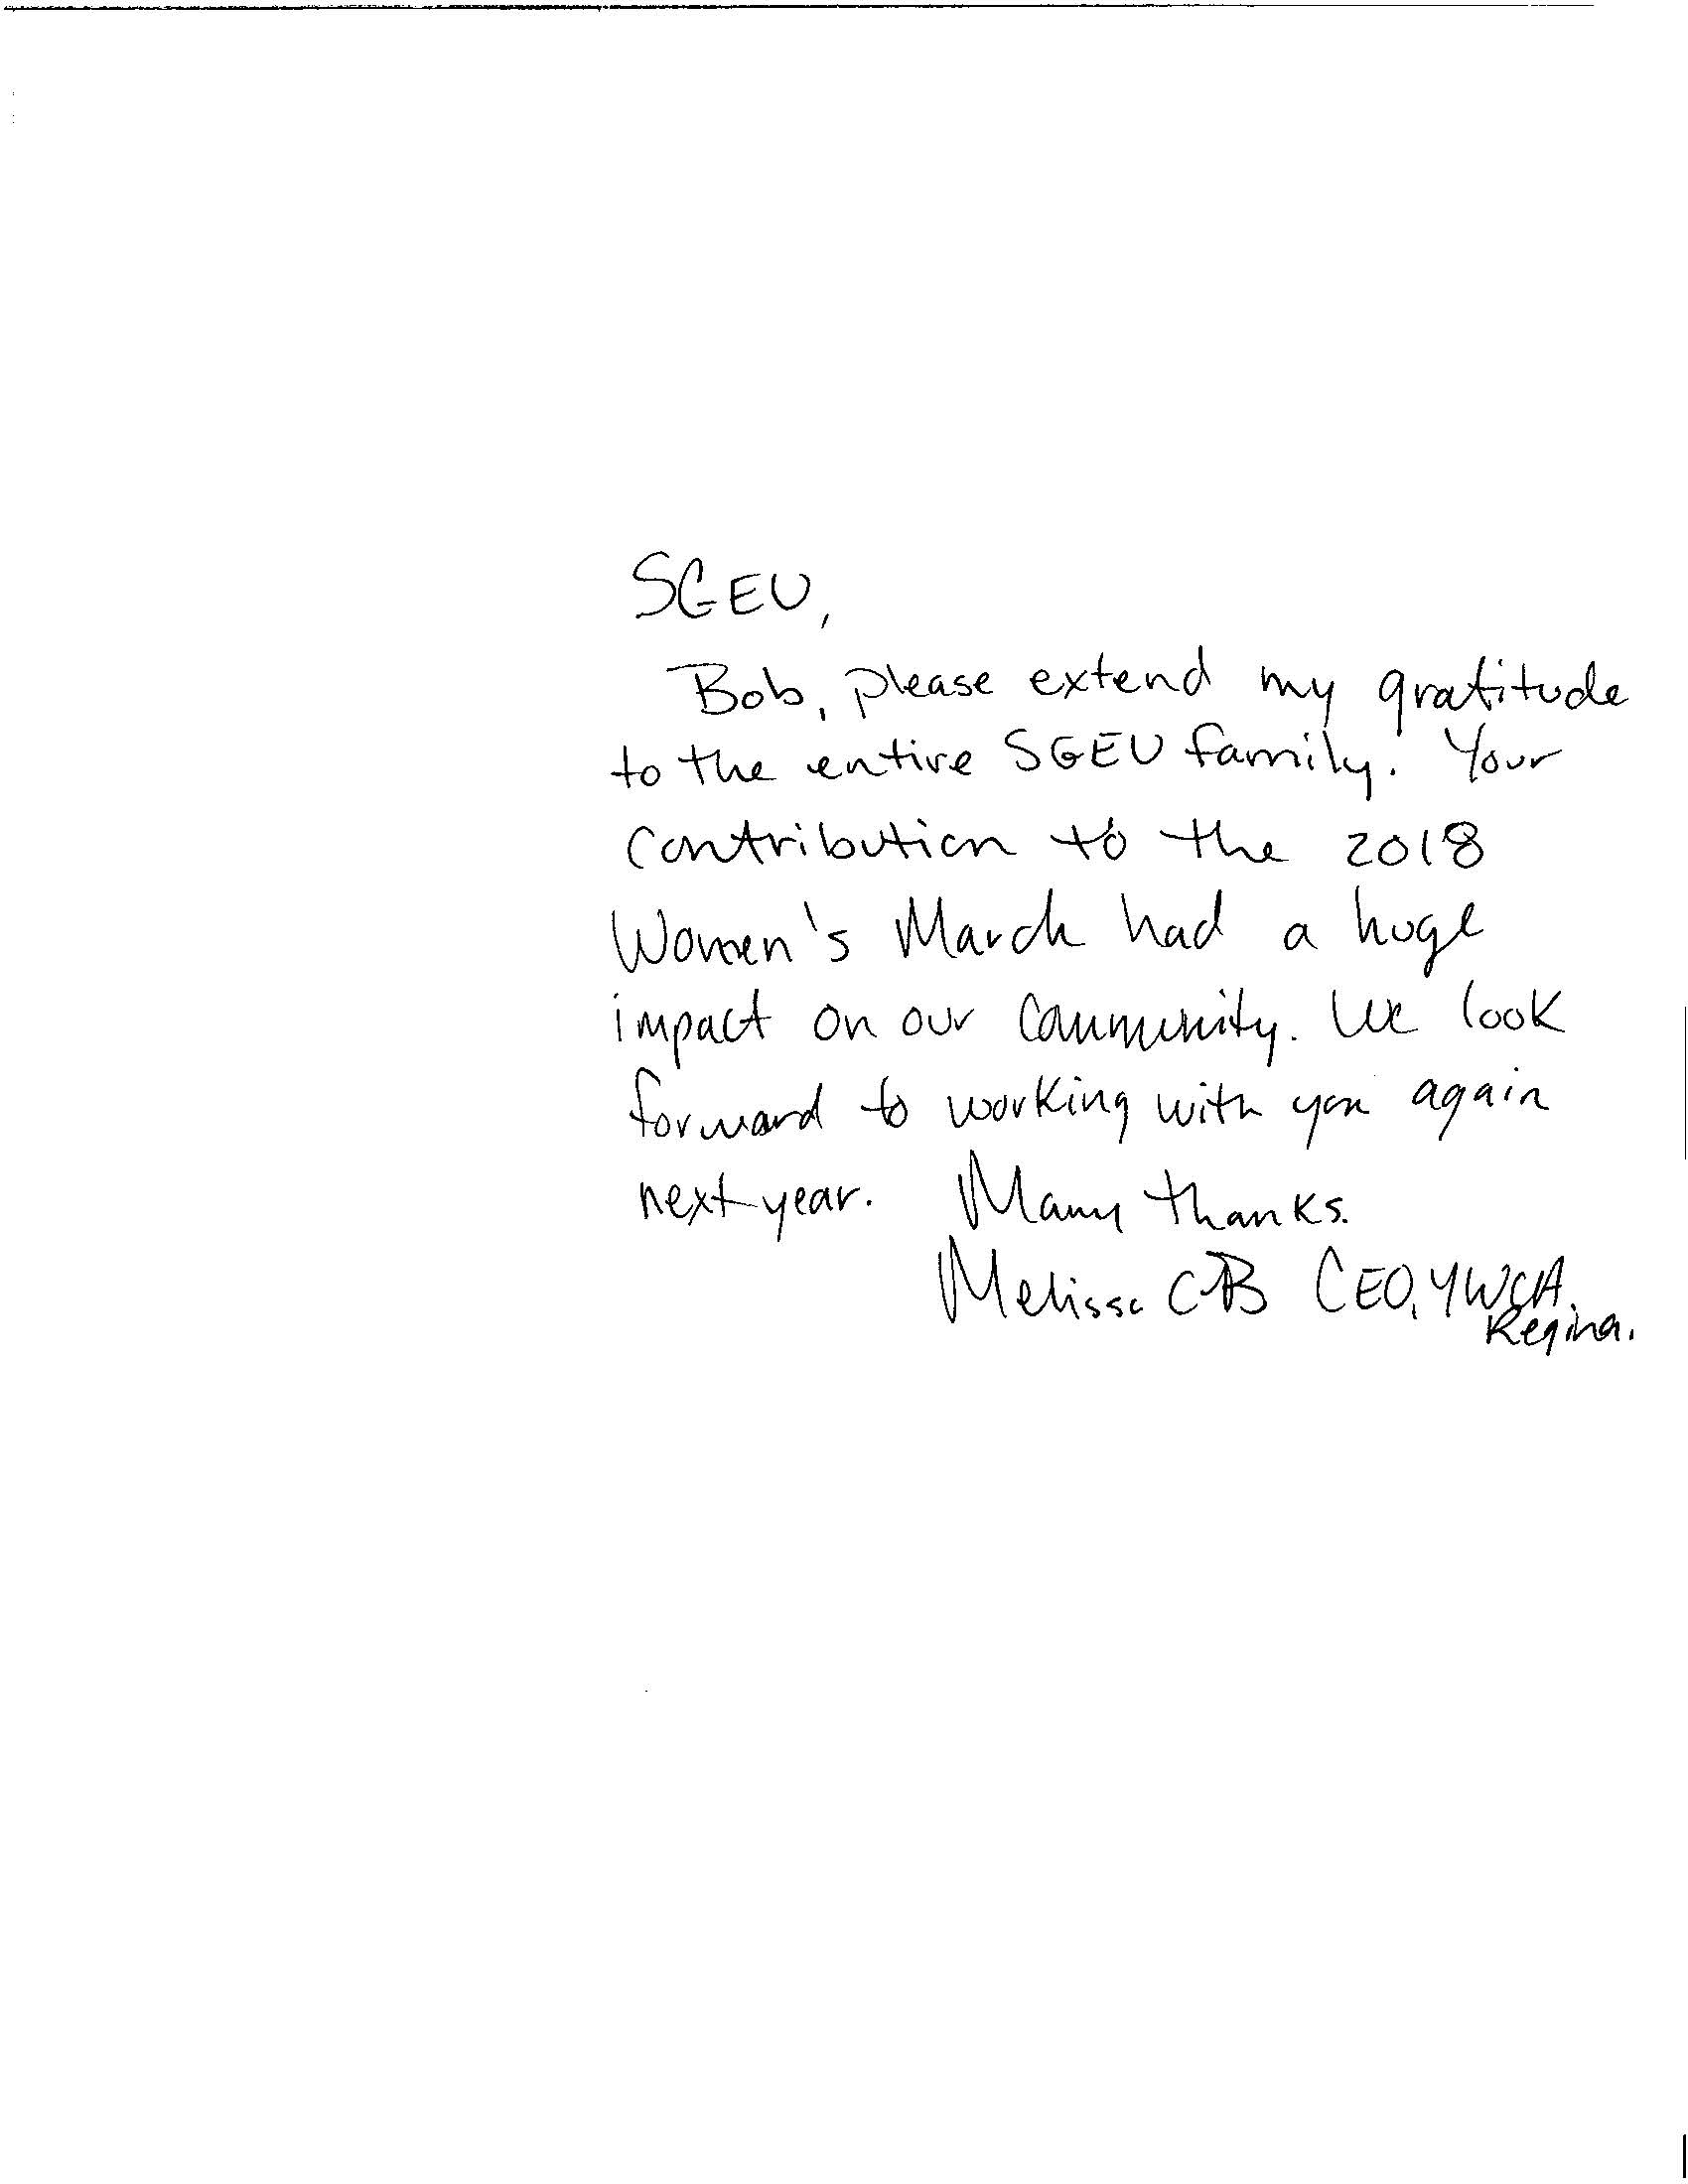 SGEU,
Bob, please extend my gratitude
to the entire SGEU family. Your
contribution to the 2018
Women's March had a huge
impact on our community. We look
forward to working with you again
next year. Many thanks.
Melissa CB CEO, YWCA.
Regina.